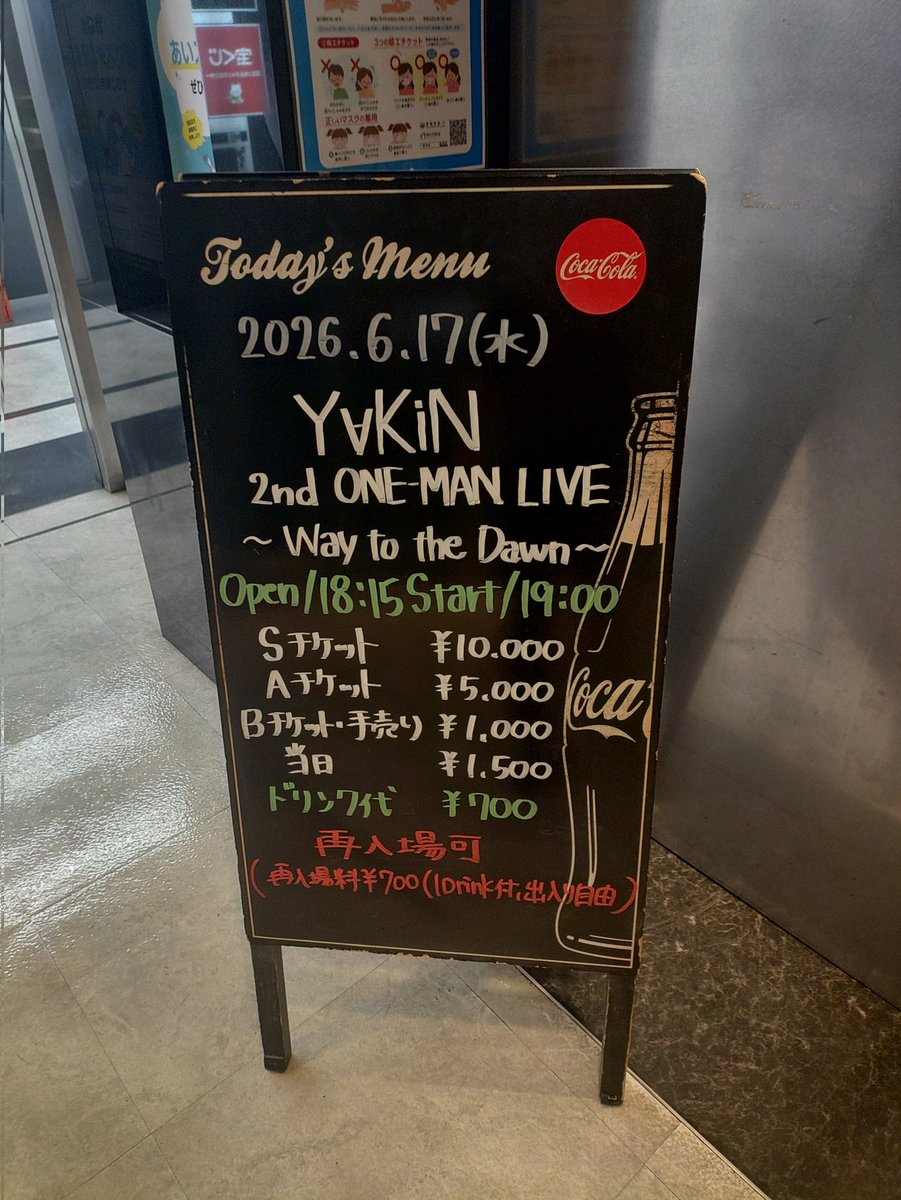 3つの咳エチケット
正しいマスクの着用
あい
ぜひ
Today's Menu
Coca-Cola
2026.6.17(水)
Y∀KiN
2nd ONE-MAN LIVE
～Way to the Dawn～
Open/18:15 Start/19:00
Sチケット ¥10.000
Aチケット ¥5.000
Bチケット・手売り ¥1.000
当日 ¥1.500
ドリンク代 ¥700
Coca
再入場可
(再入場料¥700(1Drink付,出入り自由)